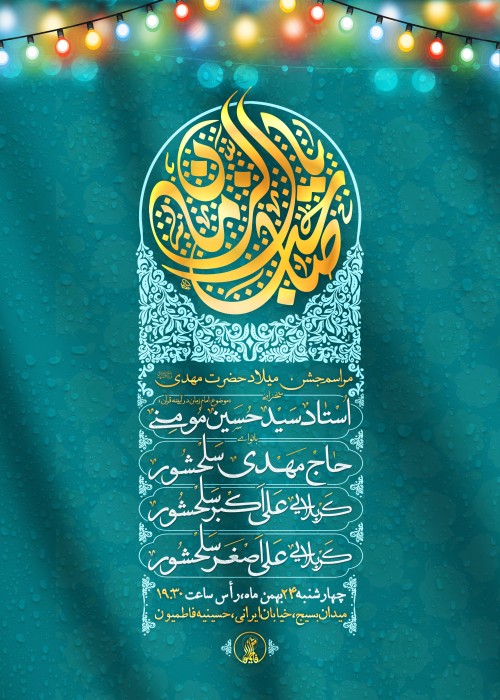 یا صاحب الزمان
مراسم جشن میلاد حضرت مهدی
سخنرانی
«موضوع: امام زمان در آیینه قرآن»
استاد سید حسین مومنی
بانوای
حاج مهدی سلحشور
کربلایی علی اکبر سلحشور
کربلایی علی اصغر سلحشور
چهارشنبه ۲۴ بهمن ماه، رأس ساعت ۱۹:۳۰
میدان بسیج، خیابان ایرانی، حسینیه فاطمیون